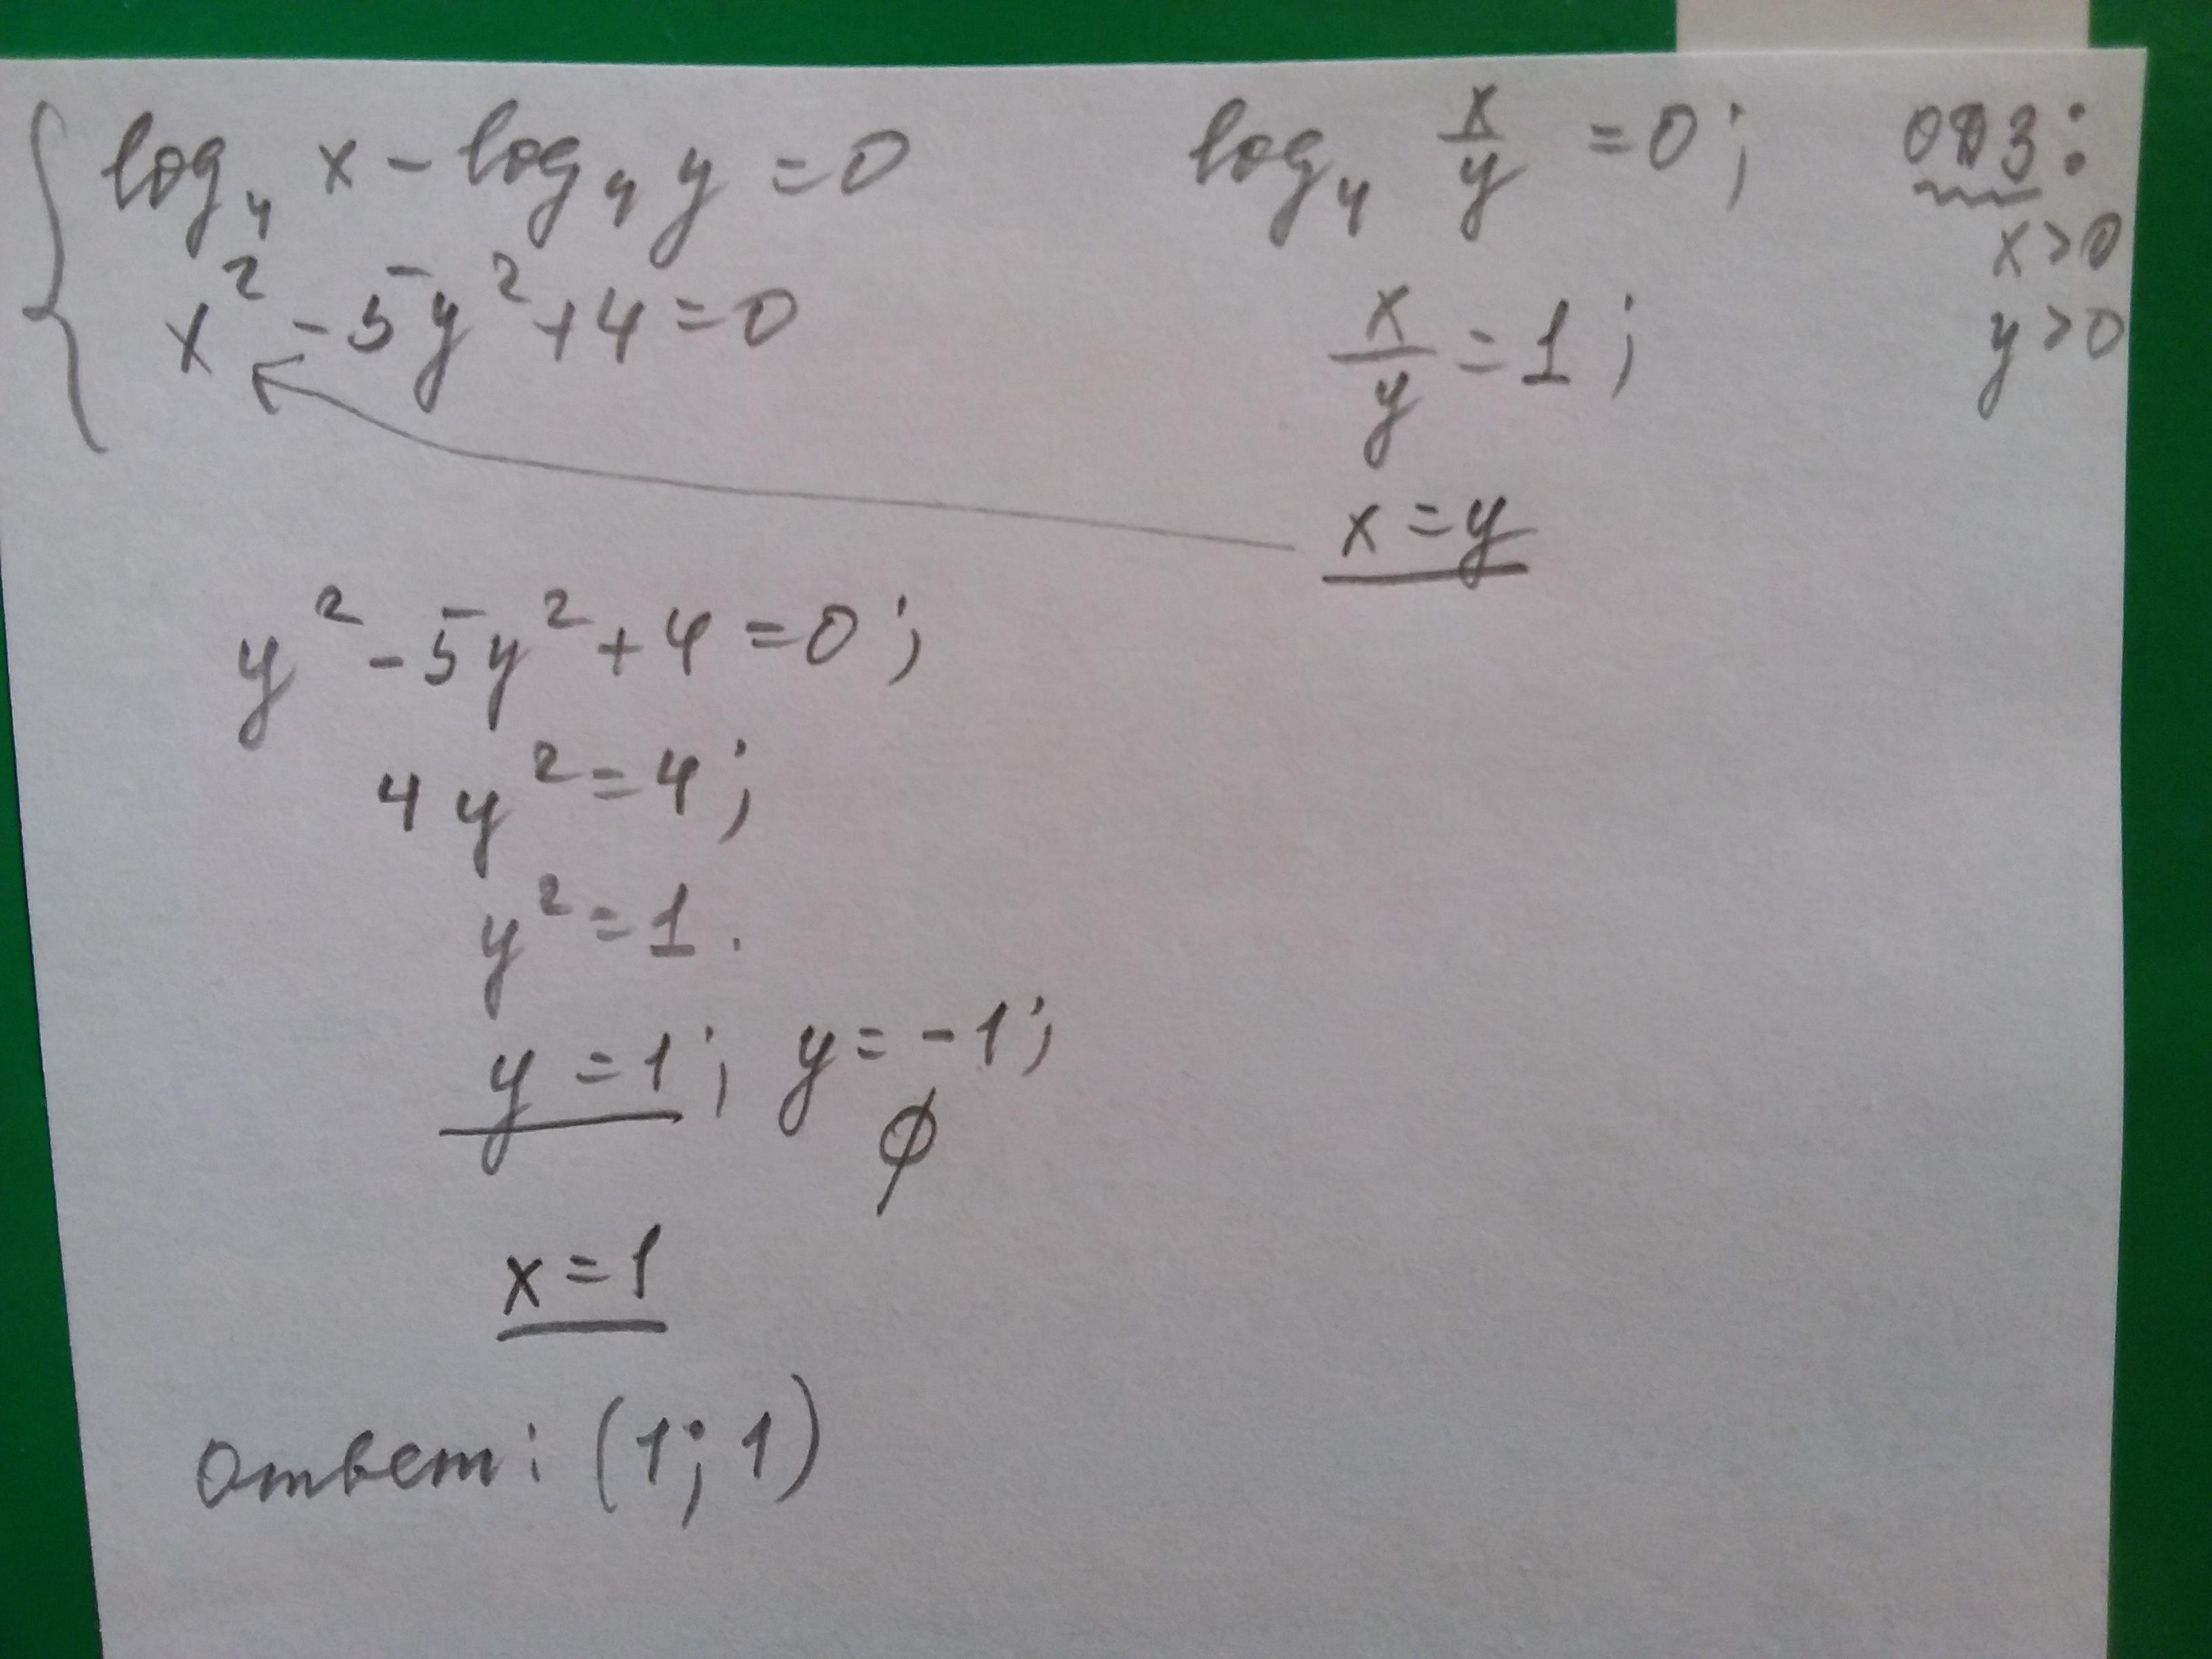 log₄ x - log₄ y = 0
x² - 5y² + 4 = 0
log₄ x/y = 0;
x/y = 1;
x = y
ОДЗ:
x > 0
y > 0
y² - 5y² + 4 = 0;
4y² = 4;
y² = 1.
y = 1; y = -1;
∅
x = 1
Ответ: (1; 1)